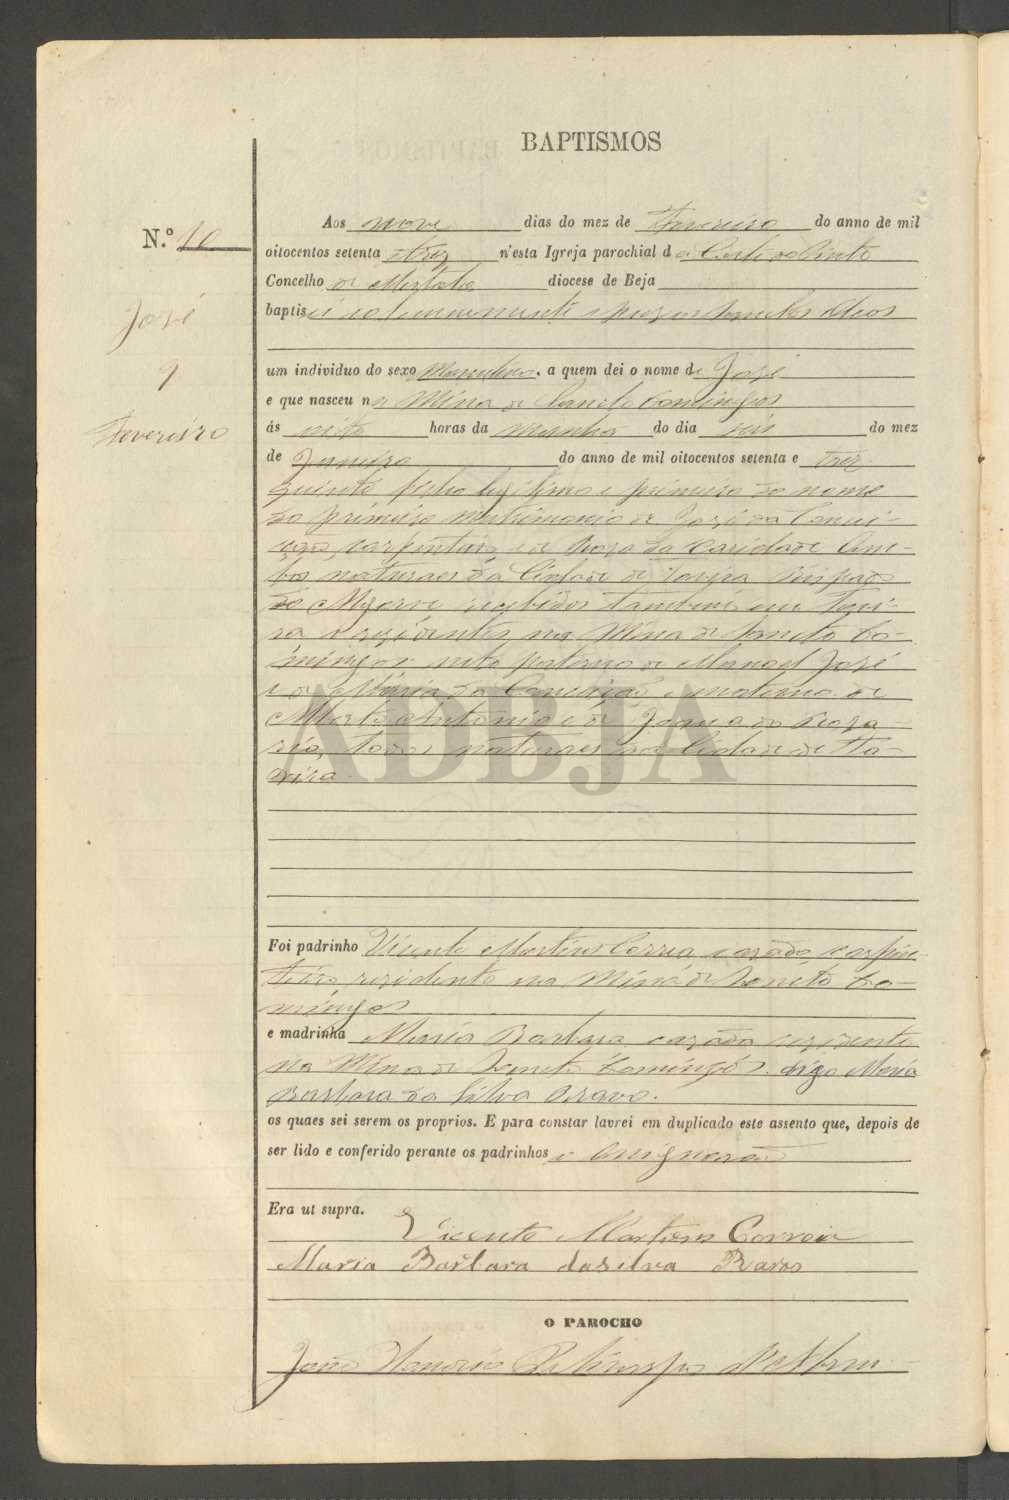 BAPTISMOS
N.º 10
José
9
Fevereiro
Aos nove dias do mez de Fevereiro do anno de mil
oitocentos setenta e trez n'esta Igreja parochial d a Corte do Pinto
Concelho de Mertola diocese de Beja
baptisei solemnemente e puz os Sanctos Oleos
um individuo do sexo Masculino, a quem dei o nome de José
e que nasceu na Mina de Sancto Domingos
ás oito horas da manhã do dia seis do mez
de Janeiro do anno de mil oitocentos setenta e trez
filho legitimo e primeiro do nome
do primeiro matrimonio de José da Concei-
ção, carpinteiro, e de Roza da Caridade Am-
bos naturaes da Cidade de Tavira Bispado
do Algarve recebidos tambem em Tavi-
ra rezidentes na Mina de Sancto Do-
mingos neto paterno de Manoel José
e de Maria da Conceição e materno de
Antonio e de Joana do Roza-
rio, todos naturaes da Cidade de Ta-
vira
Foi padrinho Vicente Martins Correa cazado carpin-
teiro rezidente na Mina de Sancto Do-
mingos
e madrinha Maria Barbara cazada rezidente
na Mina de Sancto Domingos digo Maria
Barbara da Silva
os quaes sei serem os proprios. E para constar lavrei em duplicado este assento que, depois de
ser lido e conferido perante os padrinhos e assignarão
Era ut supra.
Vicente Martins Correia
Maria Barbara da silva
O PAROCHO
João
ADBJA